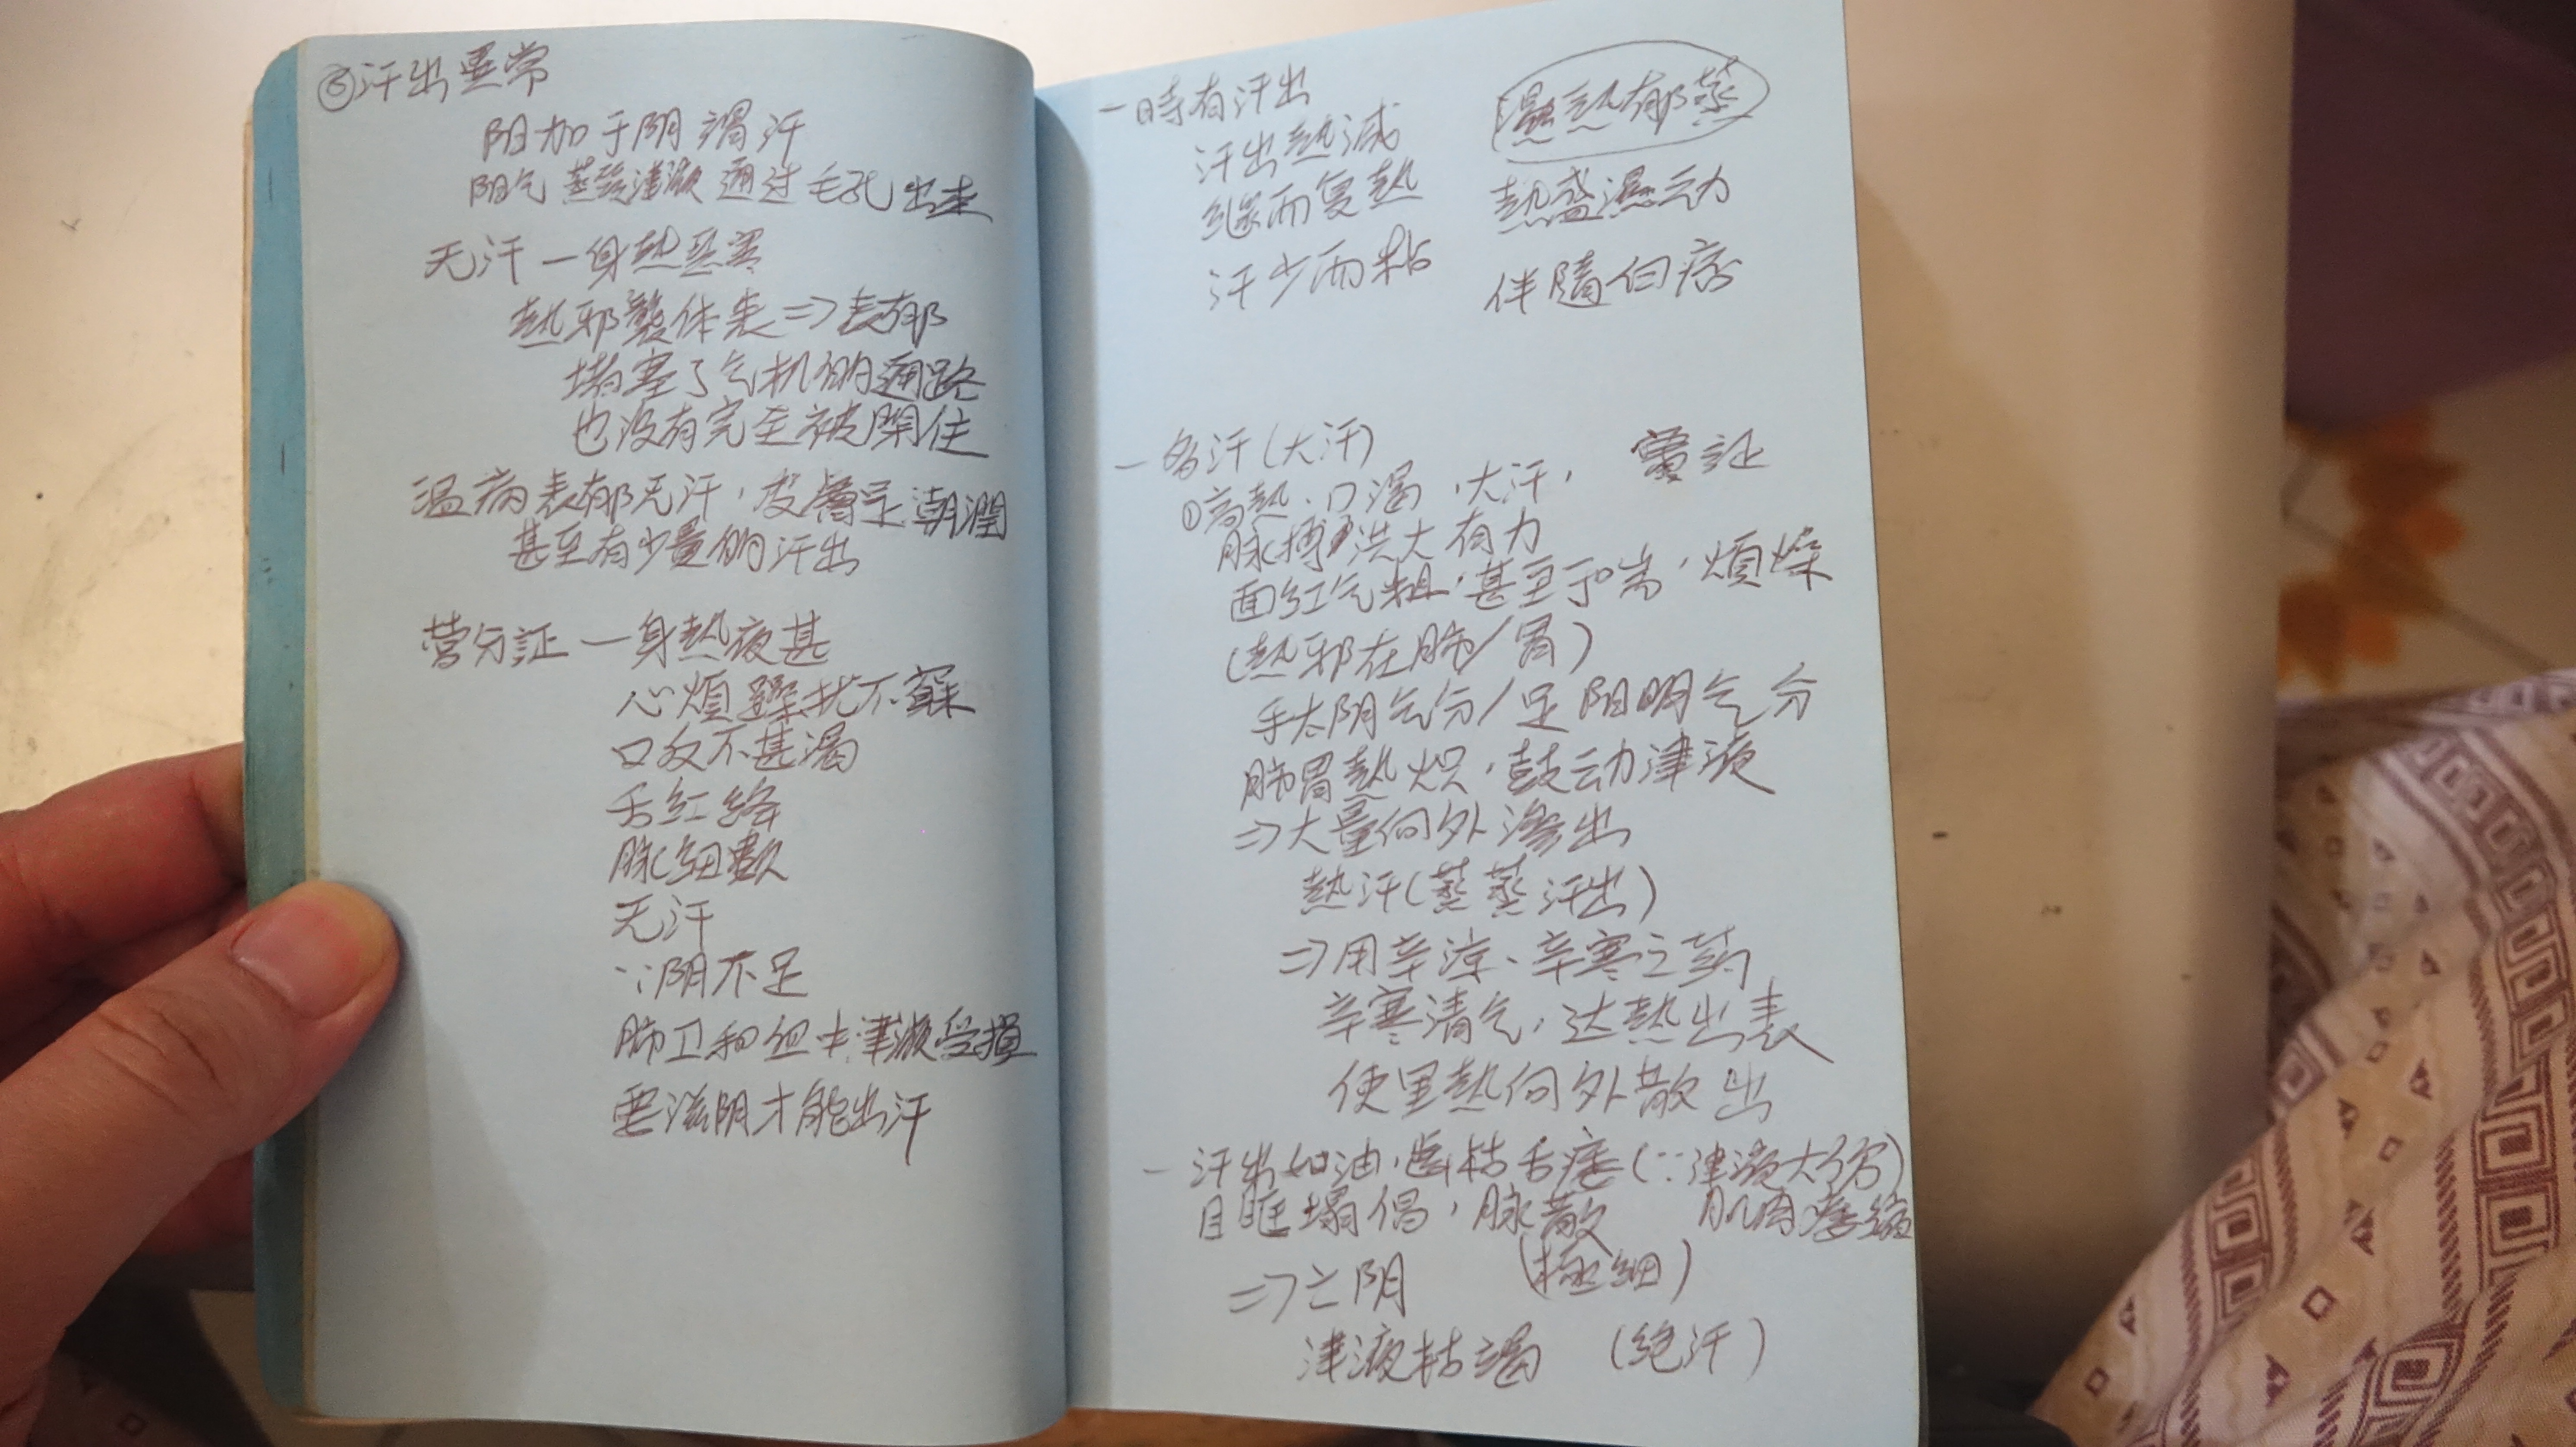 ⑤汗出異常
阳加于阴謂汗
阳气蒸騰津液通过毛孔出来
无汗一身熱惡寒
熱邪襲体表⇒表郁
堵塞了气机的通路
也没有完全被閉住
温病表郁无汗，皮膚是潮潤
甚至有少量的汗出
营分証一身熱夜甚
心煩躁扰不寐
口反不甚渴
舌红绛
脉細數
无汗
∵阴不足
肺卫和 津液受損
要滋阴才能出汗
一時有汗出
汗出熱減
继而复熱
汗少而粘
濕熱郁蒸
熱盛濕动
伴隨白㾦
一多汗(大汗)
①高熱、口渴、大汗， 証
脉搏洪大有力
面红气粗，甚至于喘，煩燥
(熱邪在肺/胃)
手太阴气分/足阳明气分
肺胃熱炽，鼓动津液
⇒大量向外滲出
熱汗(蒸蒸汗出)
⇒用辛涼、辛寒之药
辛寒清气，达熱出表
使里熱向外散出
一汗出如油，齒枯舌痿(∵津液大伤)
目眶塌 ，脉散 肌肉瘪
(極細)
⇒亡阴
津液枯竭 (绝汗)